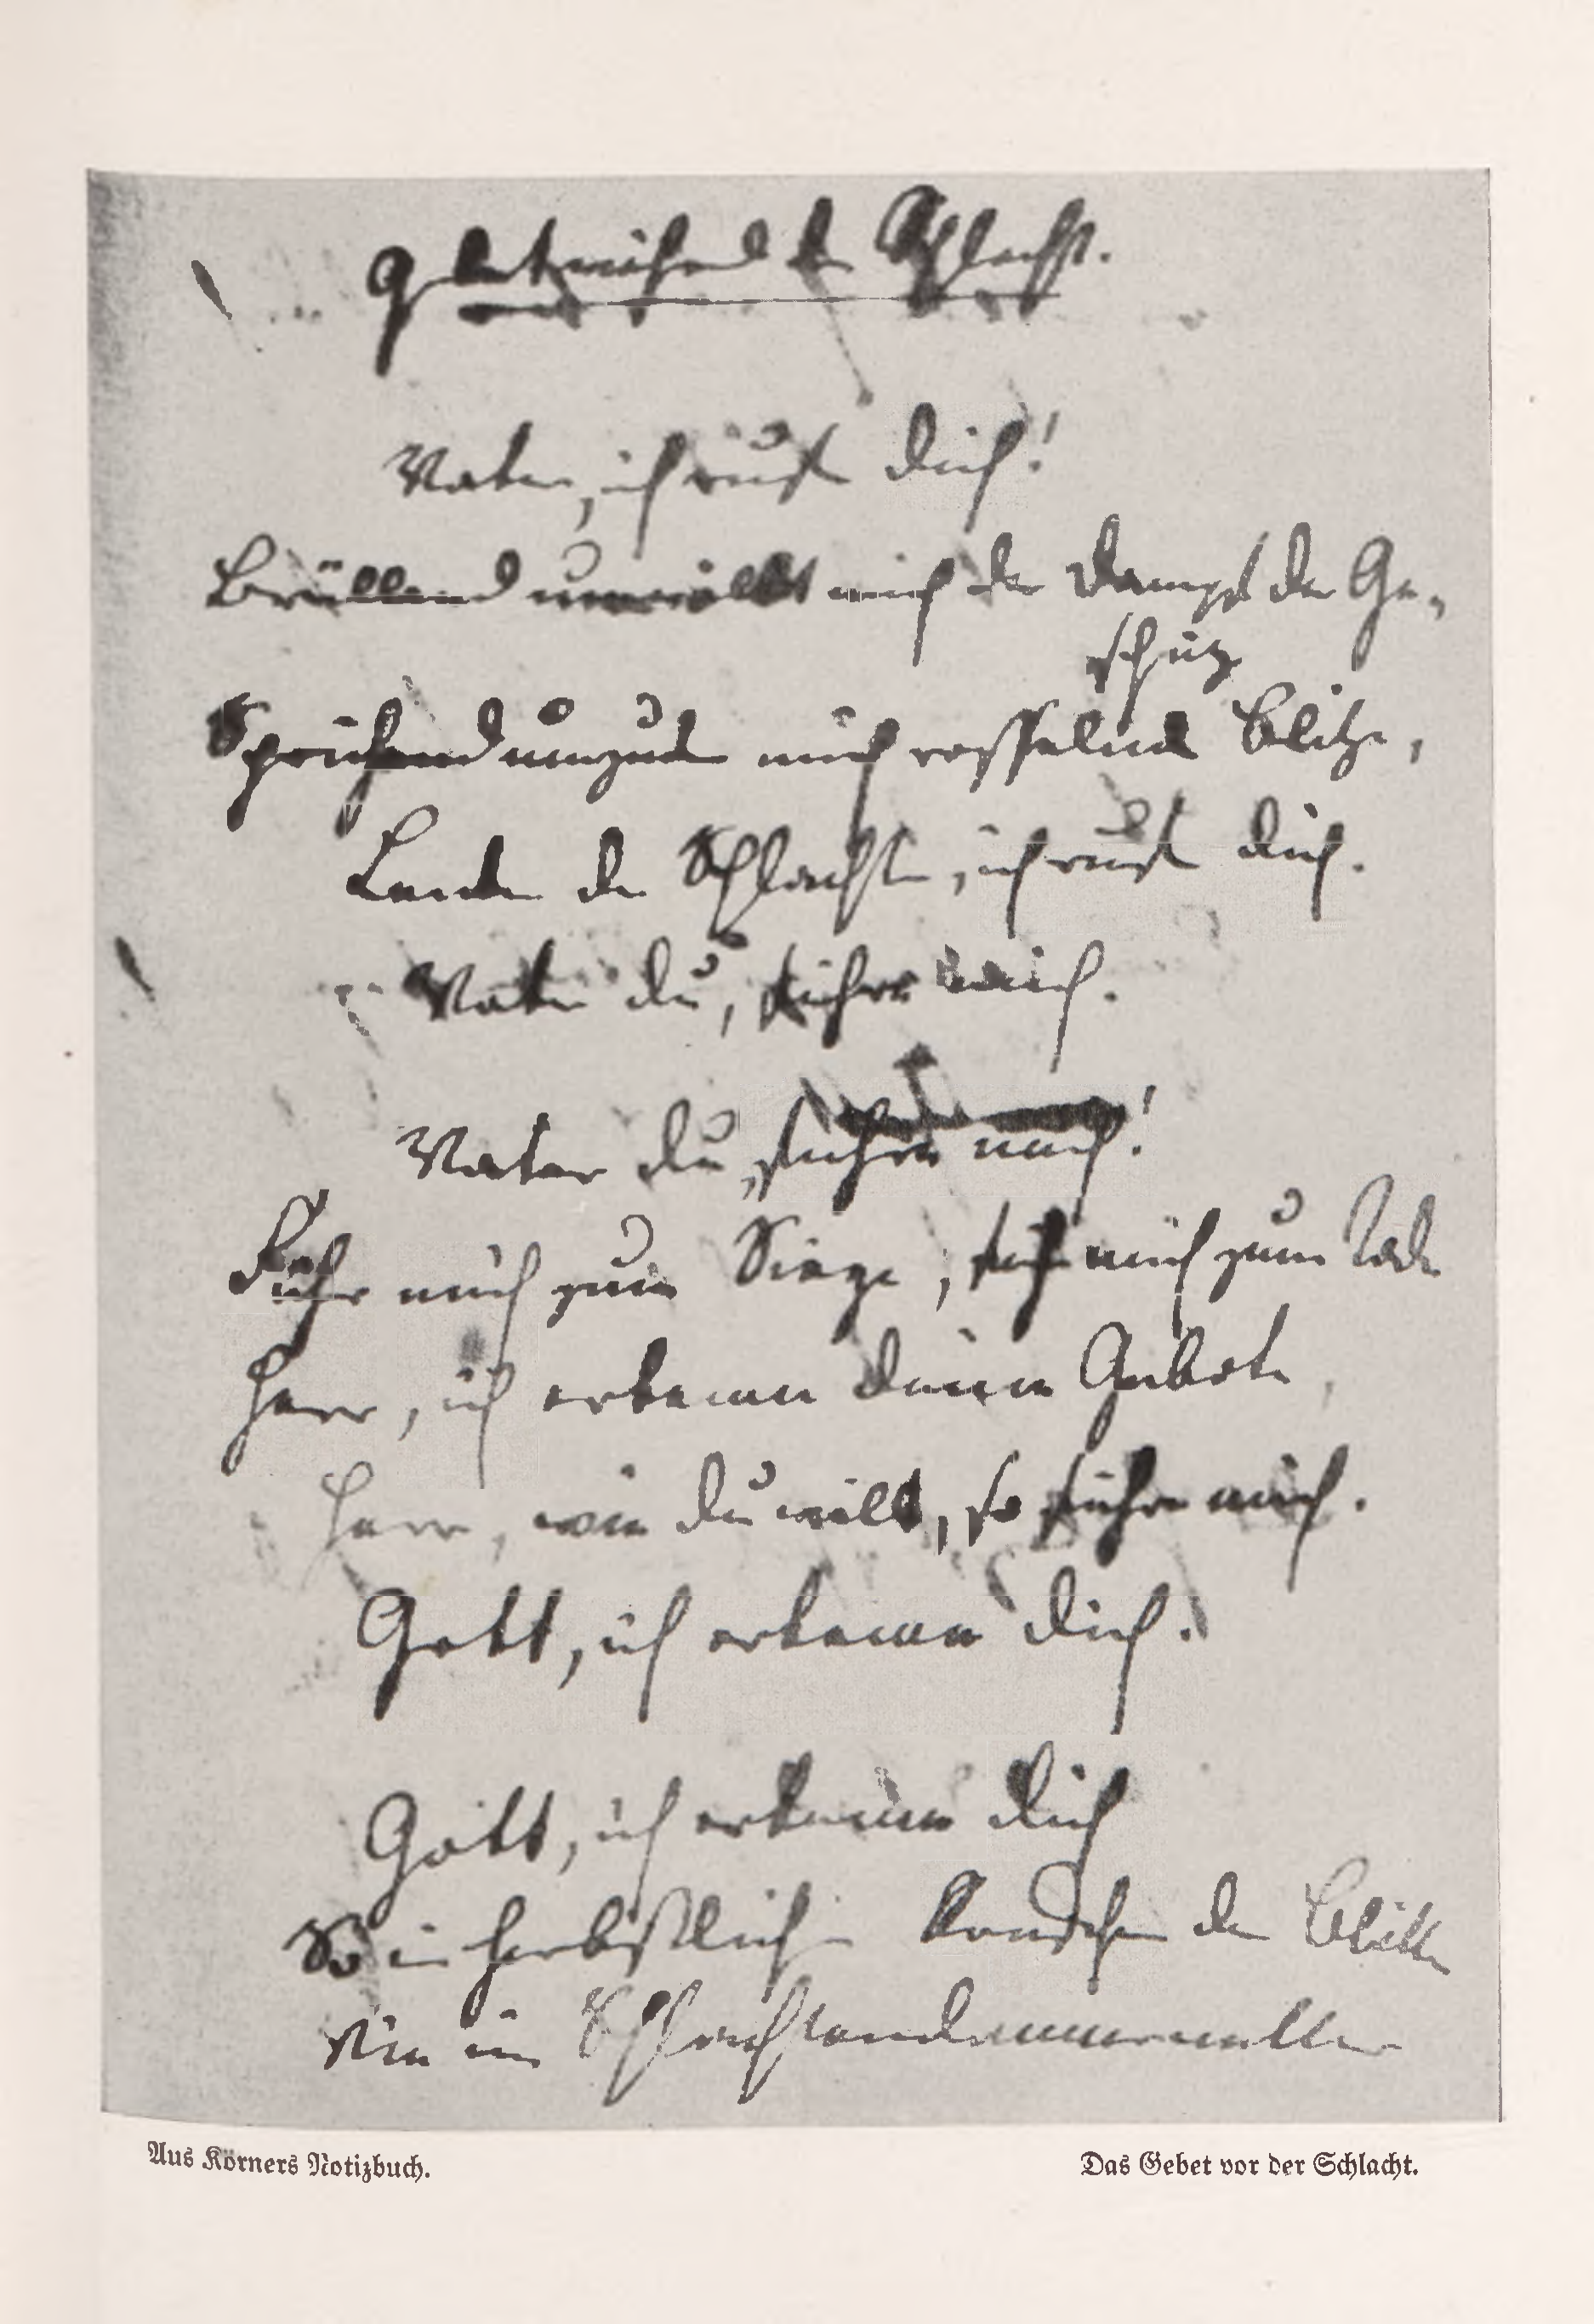 Gebet während der Schlacht.
Vater, ich rufe dich!
Brüllend umwölkt mich der Dampf der Ge-
schütze
Sprühend umzucken mich rasselnde Blitze,
Lenker der Schlachten, ich rufe dich.
Vater du, führe mich.
Vater du, führe mich!
Führ mich zum Siege, führ mich zum Tode
Herr, ich erkenne deine Gebote,
Herr, wie du willst, so führe mich.
Gott, ich erkenne dich.
Gott, ich erkenne dich
So im herbstlichen Rauschen der Blätter
Wie im Schlachtendonnerwetter
Aus Körners Notizbuch.
Das Gebet vor der Schlacht.